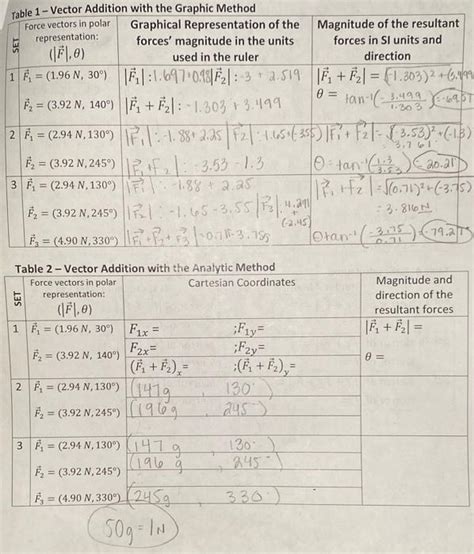 Table 1 – Vector Addition with the Graphic Method
SET
Force vectors in polar representation: (|F⃗|, θ)
Graphical Representation of the forces' magnitude in the units used in the ruler
Magnitude of the resultant forces in SI units and direction
1 F⃗₁ = (1.96 N, 30°) |F⃗₁| : 1.697+0.98 |F⃗₂| : -3 + 2.519 |F⃗₁ + F⃗₂| =
F⃗₂ = (3.92 N, 140°) |F⃗₁ + F⃗₂| : -1.303 + 3.499 θ = tan⁻¹
2 F⃗₁ = (2.94 N, 130°) |F⃗₁| : -1.88 + 2.25 |F⃗₂| |F⃗₁ + F⃗₂| =
F⃗₂ = (3.92 N, 245°) |F⃗₁ + F⃗₂| : -3.53 - 1.3 θ = tan⁻¹(1.3/3.53) = 20.21
3 F⃗₁ = (2.94 N, 130°) |F⃗₁| : -1.88 + 2.25
F⃗₂ = (3.92 N, 245°) |F⃗₂| : -1.65 - 3.55 |F⃗₃| 4.291 + (-2.45) = 3.816N
F⃗₃ = (4.90 N, 330°) |F⃗₁ + F⃗₂ + F⃗₃| θ tan⁻¹(-3.75/0.71)
Table 2 – Vector Addition with the Analytic Method
SET
Force vectors in polar representation: (|F⃗|, θ)
Cartesian Coordinates
Magnitude and direction of the resultant forces
1 F⃗₁ = (1.96 N, 30°) F₁ₓ = ;F₁ᵧ= |F⃗₁ + F⃗₂| =
F⃗₂ = (3.92 N, 140°) F₂ₓ= ;F₂ᵧ= θ =
(F⃗₁ + F⃗₂)ₓ= ;(F⃗₁ + F⃗₂)ᵧ=
2 F⃗₁ = (2.94 N, 130°) (147g, 130°)
F⃗₂ = (3.92 N, 245°) (196g, 245°)
3 F⃗₁ = (2.94 N, 130°) (147 g, 130°)
F⃗₂ = (3.92 N, 245°) (196 g, 245°)
F⃗₃ = (4.90 N, 330°) (245g, 330°)
50g = 1N